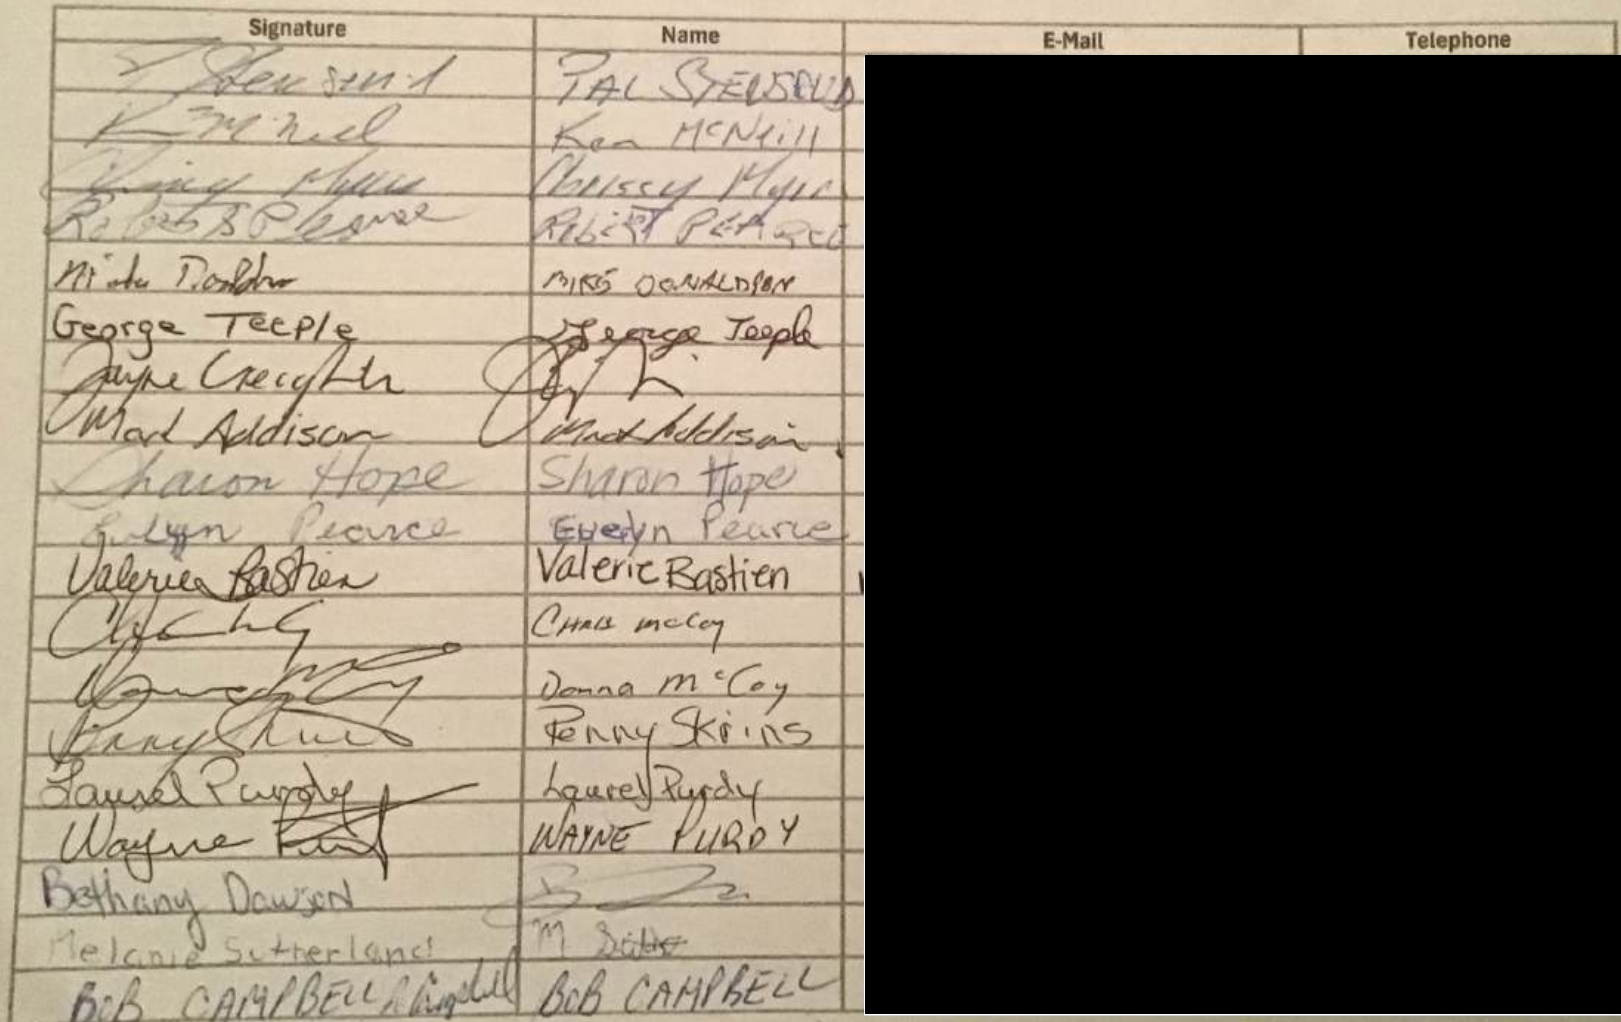 Signature Name E-Mail Telephone
PAL STENSRUD
K McNeil Ken McNeill
Chrissy Myers Chrissy
Robert Pearce Robert PEARCE
MIKE DONALDSON
George TEEPLE George Teeple
Jayne Creighton
Mark Addison Mark Addison
Sharon Hope Sharon Hope
Evelyn Pearce Evelyn Pearce
Valerie Bastien Valerie Bastien
CHRIS McCoy
Donna McCoy
Penny Penny Skrins
Laurel Purdy Laurel Purdy
Wayne WAYNE PURDY
Bethany Dawson
Melanie Sutherland M
BOB CAMPBELL Campbell BOB CAMPBELL